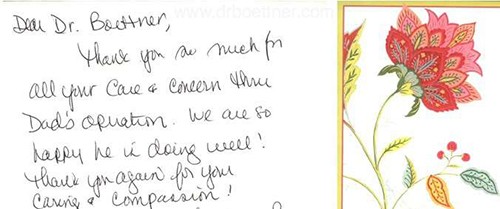 www.drboettner.com
Dear Dr. Boettner,
Thank you so much for
all your Care & Concern thru
Dad's operation. We are so
happy he is doing well!
Thank you again for your
Caring & Compassion!